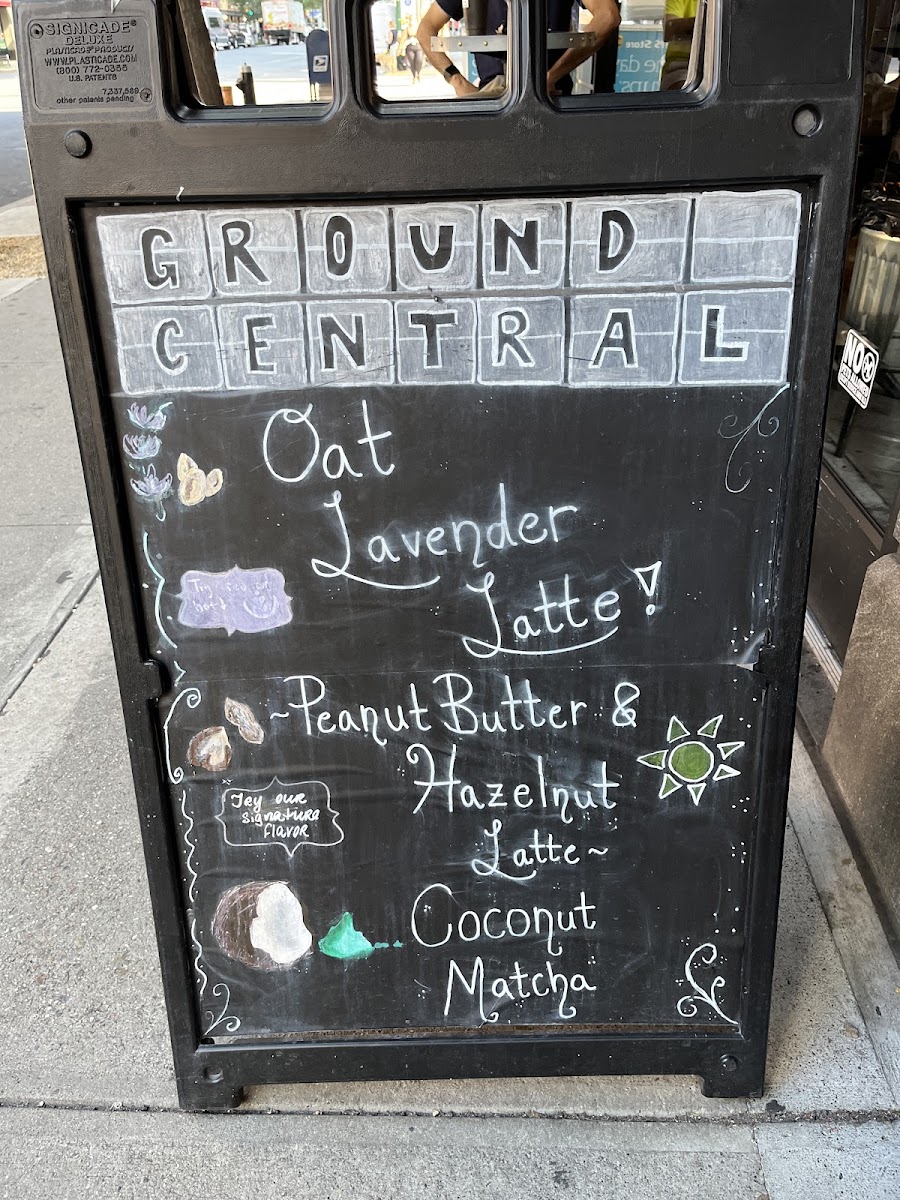 SIGNICADE®
DELUXE
PLASTICADE® PRODUCTS
WWW.PLASTICADE.COM
(800) 772-0355
U.S. PATENTS
7,337,569
other patents pending
GROUND
CENTRAL
Oat
Lavender
Latte!
~Peanut Butter &
Hazelnut
Latte~
Try our
signature
flavor
Coconut
Matcha
NO